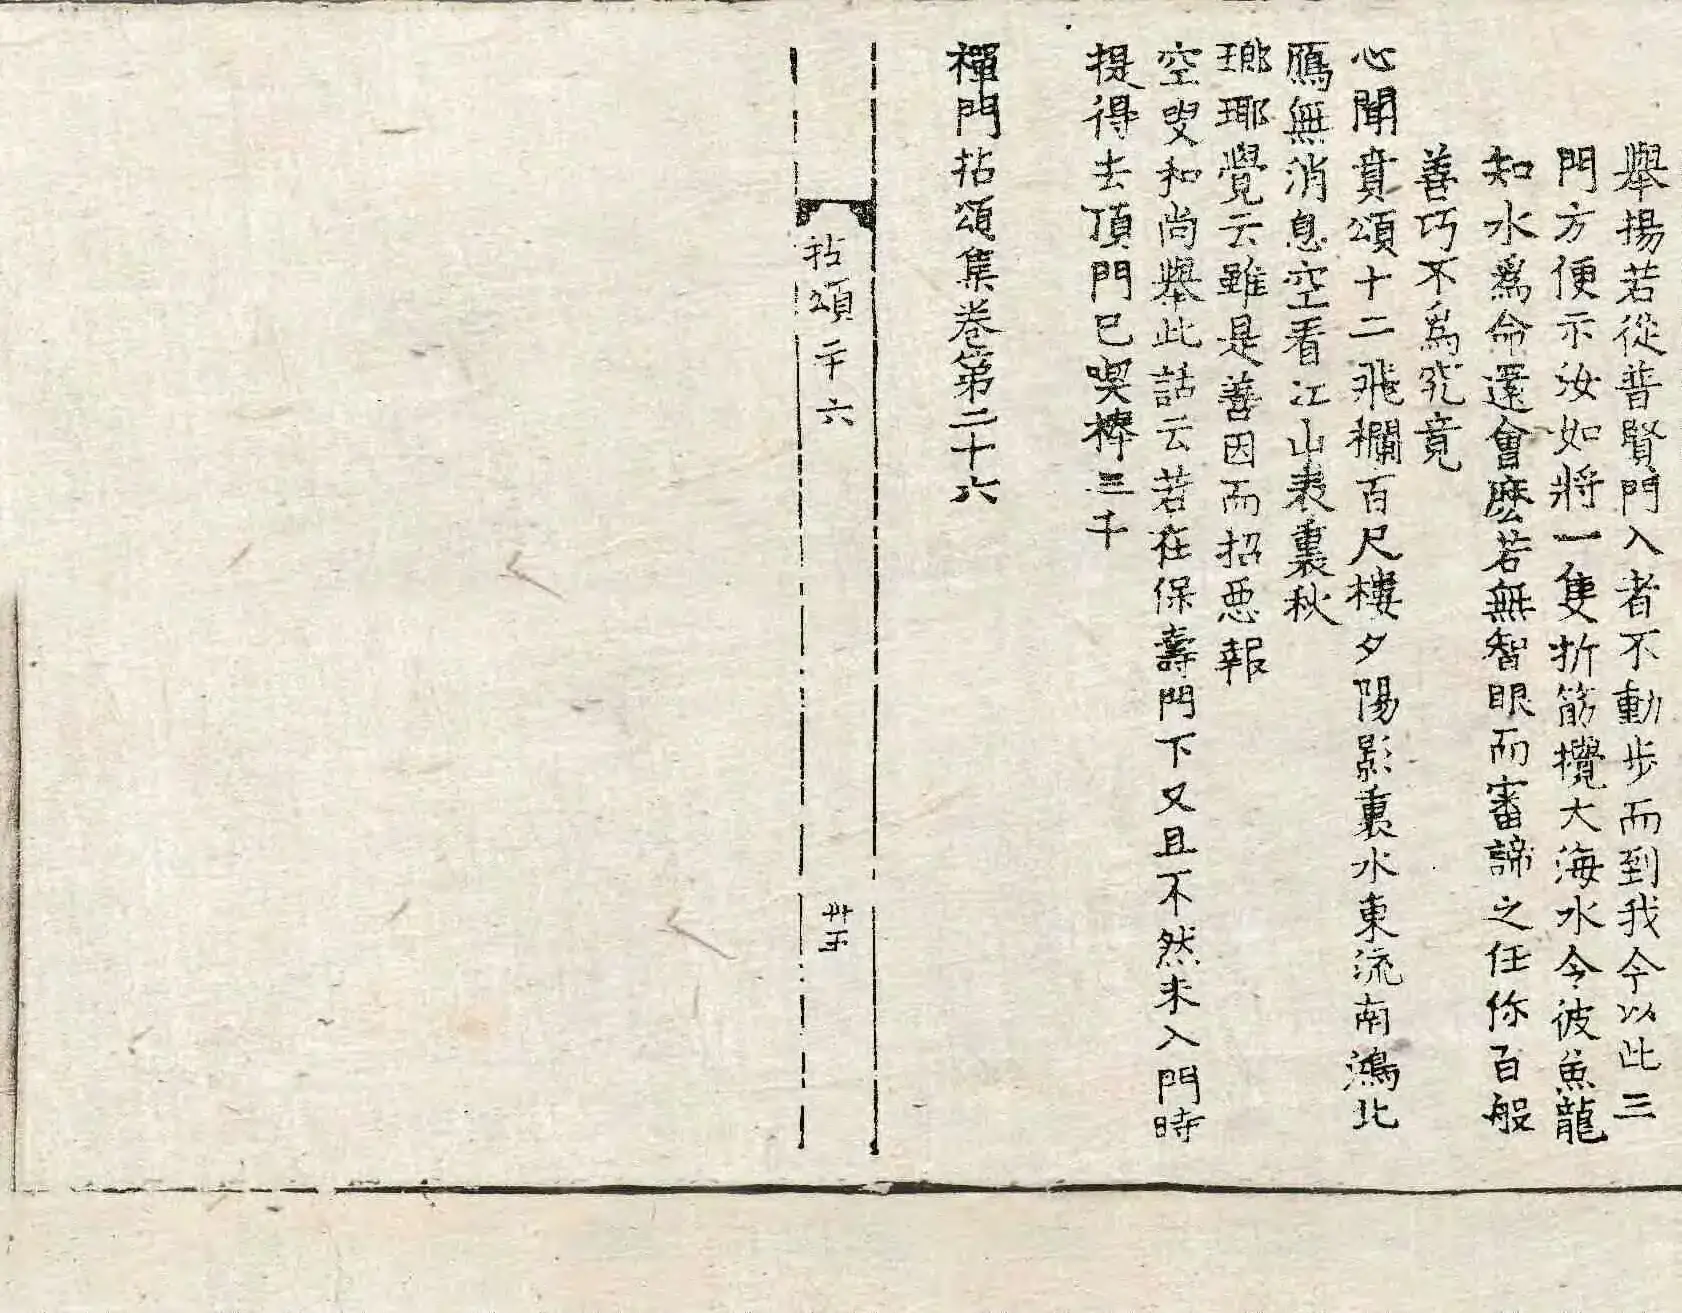 舉揚若從普賢門入者不動步而到我今以此三
門方便示汝如將一隻折筯攪大海水令彼魚龍
知水爲命還會麽若無智眼而審諦之任你百般
善巧不爲究竟
心聞賁頌十二飛欄百尺樓夕陽影裏水東流南鴻北
鴈無消息空看江山表裏秋
瑯琊覺云雖是善因而招惡報
空叟和尚舉此話云若在保壽門下又且不然未入門時
提得去頂門已喫棒三千
禪門拈頌集卷第二十六
拈頌二十六
卅五